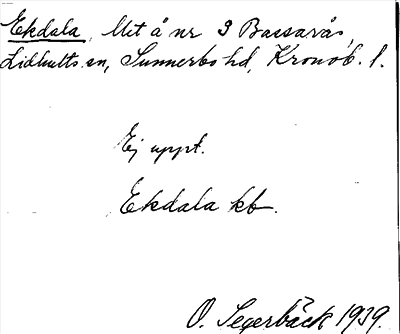 Ekdala, Met å nr 3 Bassarås,
Lidhults sn, Sunnerbo hd, Kronob. l.
Ej uppt.
Ekdala kb.
O. Segerbäck 1939.